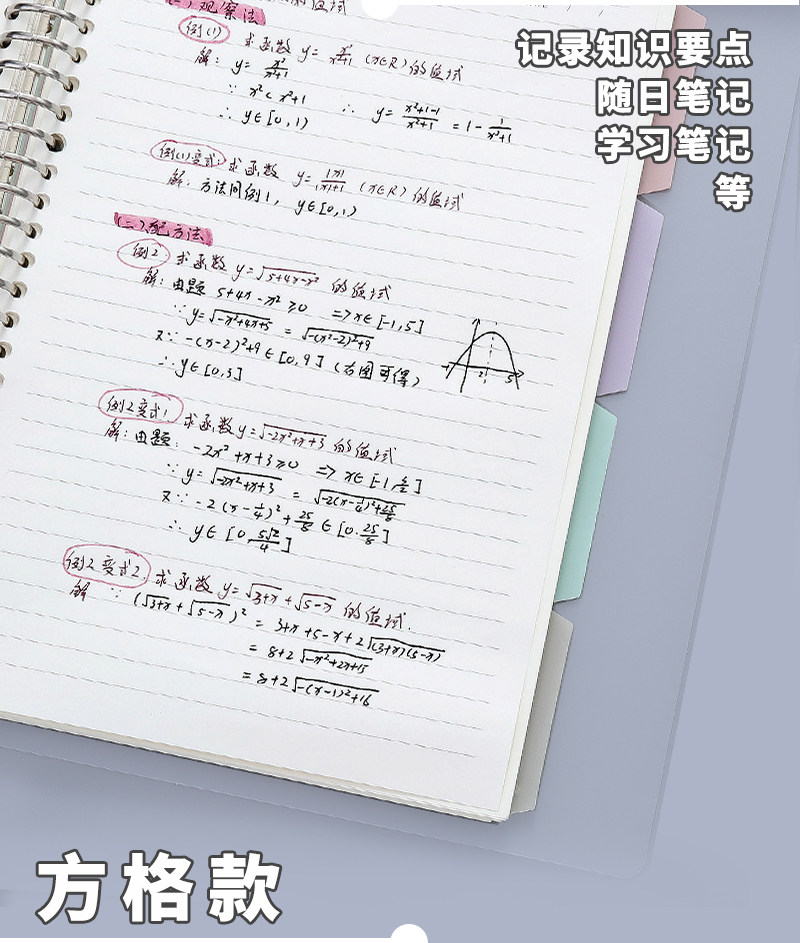 记录知识要点
随日笔记
学习笔记
等
(一)观察法
例(1) 求函数 y = x²/x²+1 (x∈R) 的值域
解: y = x²/x²+1
∵ x² < x²+1 ∴ y = x²+1-1/x²+1 = 1 - 1/x²+1
∴ y∈[0,1)
例(1)变式: 求函数 y = |x|/|x|+1 (x∈R) 的值域
解: 方法同例1, y∈[0,1)
(二)配方法
例2 求函数 y=√5+4x-x² 的值域
解: 由题 5+4x-x² ≥0 => x∈[-1,5]
∵ y=√-x²+4x+5 = √-(x-2)²+9
又∵ -(x-2)²+9 ∈ [0,9] (右图可得)
∴ y∈[0,3]
2 5
例2变式1 求函数 y=√-2x²+x+3 的值域
解: 由题: -2x²+x+3≥0 => x∈[-1,3/2]
∵ y=√-2x²+x+3 = √-2(x-1/4)²+25/8
又∵ -2(x-1/4)²+25/8 ∈ [0,25/8]
∴ y∈[0,5√2/4]
例2变式2, 求函数 y=√3+x+√5-x 的值域.
解 ∵ (√3+x+√5-x)² = 3+x+5-x+2√(3+x)(5-x)
= 8+2√-x²+2x+15
= 8+2√-(x-1)²+16
方格款